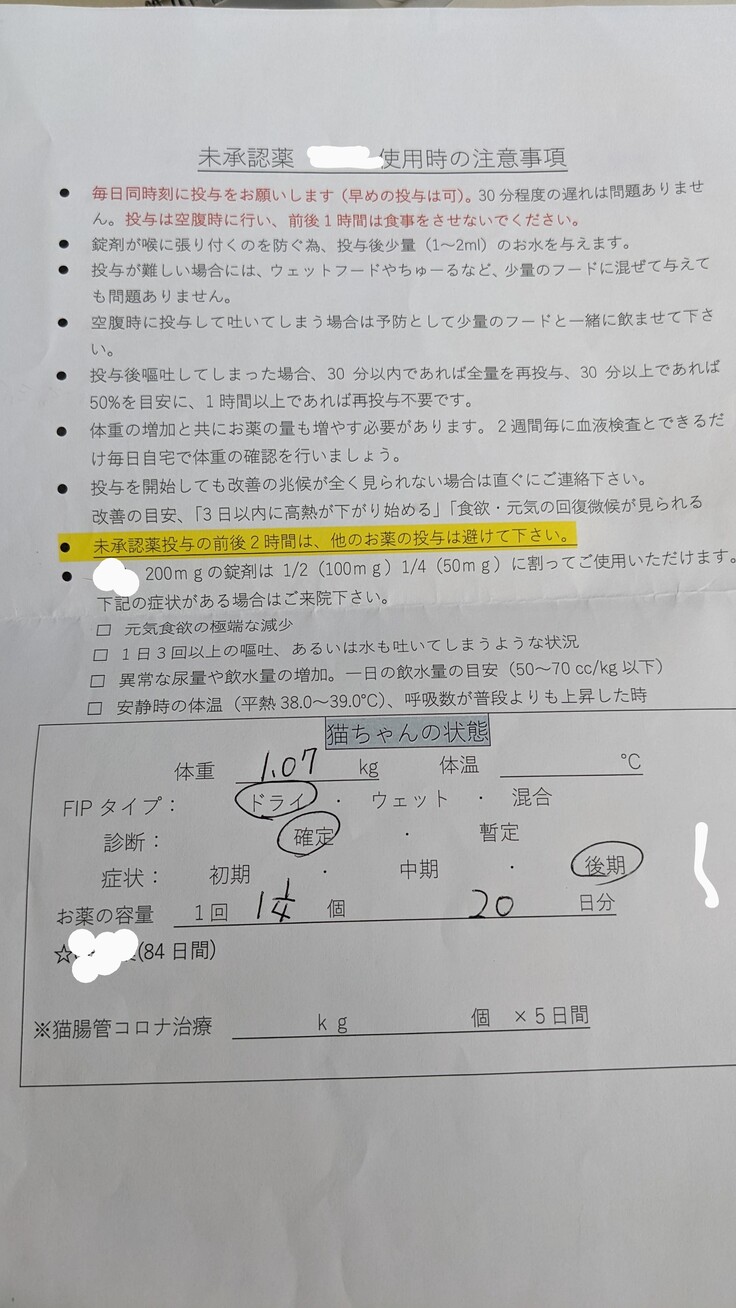 未承認薬 使用時の注意事項
● 毎日同時刻に投与をお願いします（早めの投与は可）。30分程度の遅れは問題ありませ
ん。投与は空腹時に行い、前後1時間は食事をさせないでください。
● 錠剤が喉に張り付くのを防ぐ為、投与後少量（1～2ml）のお水を与えます。
● 投与が難しい場合には、ウェットフードやちゅーるなど、少量のフードに混ぜて与えて
も問題ありません。
● 空腹時に投与して吐いてしまう場合は予防として少量のフードと一緒に飲ませて下さ
い。
● 投与後嘔吐してしまった場合、30 分以内であれば全量を再投与、30 分以上であれば
50%を目安に、1時間以上であれば再投与不要です。
● 体重の増加と共にお薬の量も増やす必要があります。2週間毎に血液検査とできるだ
け毎日自宅で体重の確認を行いましょう。
● 投与を開始しても改善の兆候が全く見られない場合は直ぐにご連絡下さい。
改善の目安、「3日以内に高熱が下がり始める」「食欲・元気の回復徴候が見られる
● 未承認薬投与の前後2時間は、他のお薬の投与は避けて下さい。
● 200ｍｇの錠剤は 1/2（100ｍｇ）1/4（50ｍｇ）に割ってご使用いただけます。
下記の症状がある場合はご来院下さい。
□ 元気食欲の極端な減少
□ 1日3回以上の嘔吐、あるいは水も吐いてしまうような状況
□ 異常な尿量や飲水量の増加。一日の飲水量の目安（50～70 cc/kg 以下）
□ 安静時の体温（平熱 38.0～39.0℃）、呼吸数が普段よりも上昇した時
猫ちゃんの状態
体重 1.07 kg 体温 ℃
FIP タイプ： ドライ ・ ウェット ・ 混合
診断： 確定 ・ 暫定
症状： 初期 ・ 中期 ・ 後期
お薬の容量 1回 1 1/4 個 20 日分
☆ (84日間)
※猫腸管コロナ治療 ｋｇ 個 ×5日間